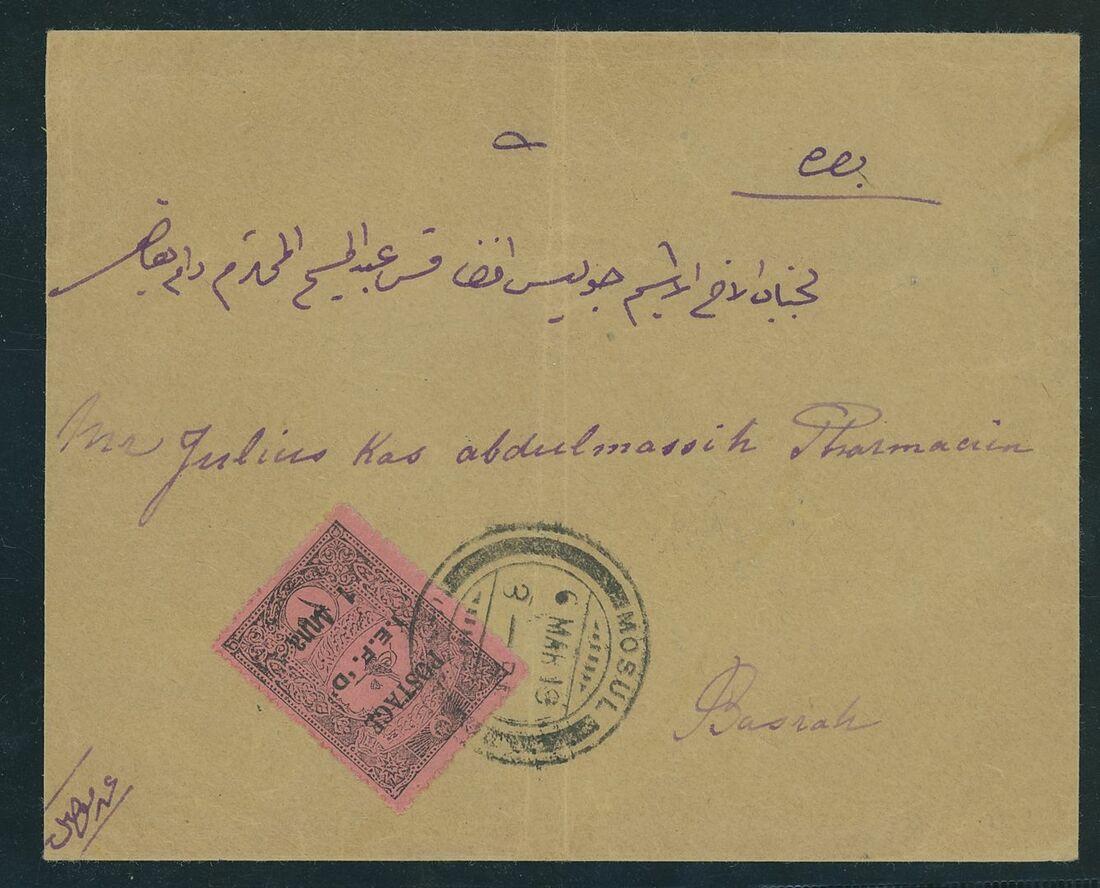 بصره
لجناب الاخ الاكرم جوليس افندي قس عبد المسيح المحترم دام بقاه
Mr Julius Kas abdulmassih Pharmacien
POSTAGE
I.E.F. 'D'
1 Anna
MOSUL
6 MAR 19
3 —
Basrah